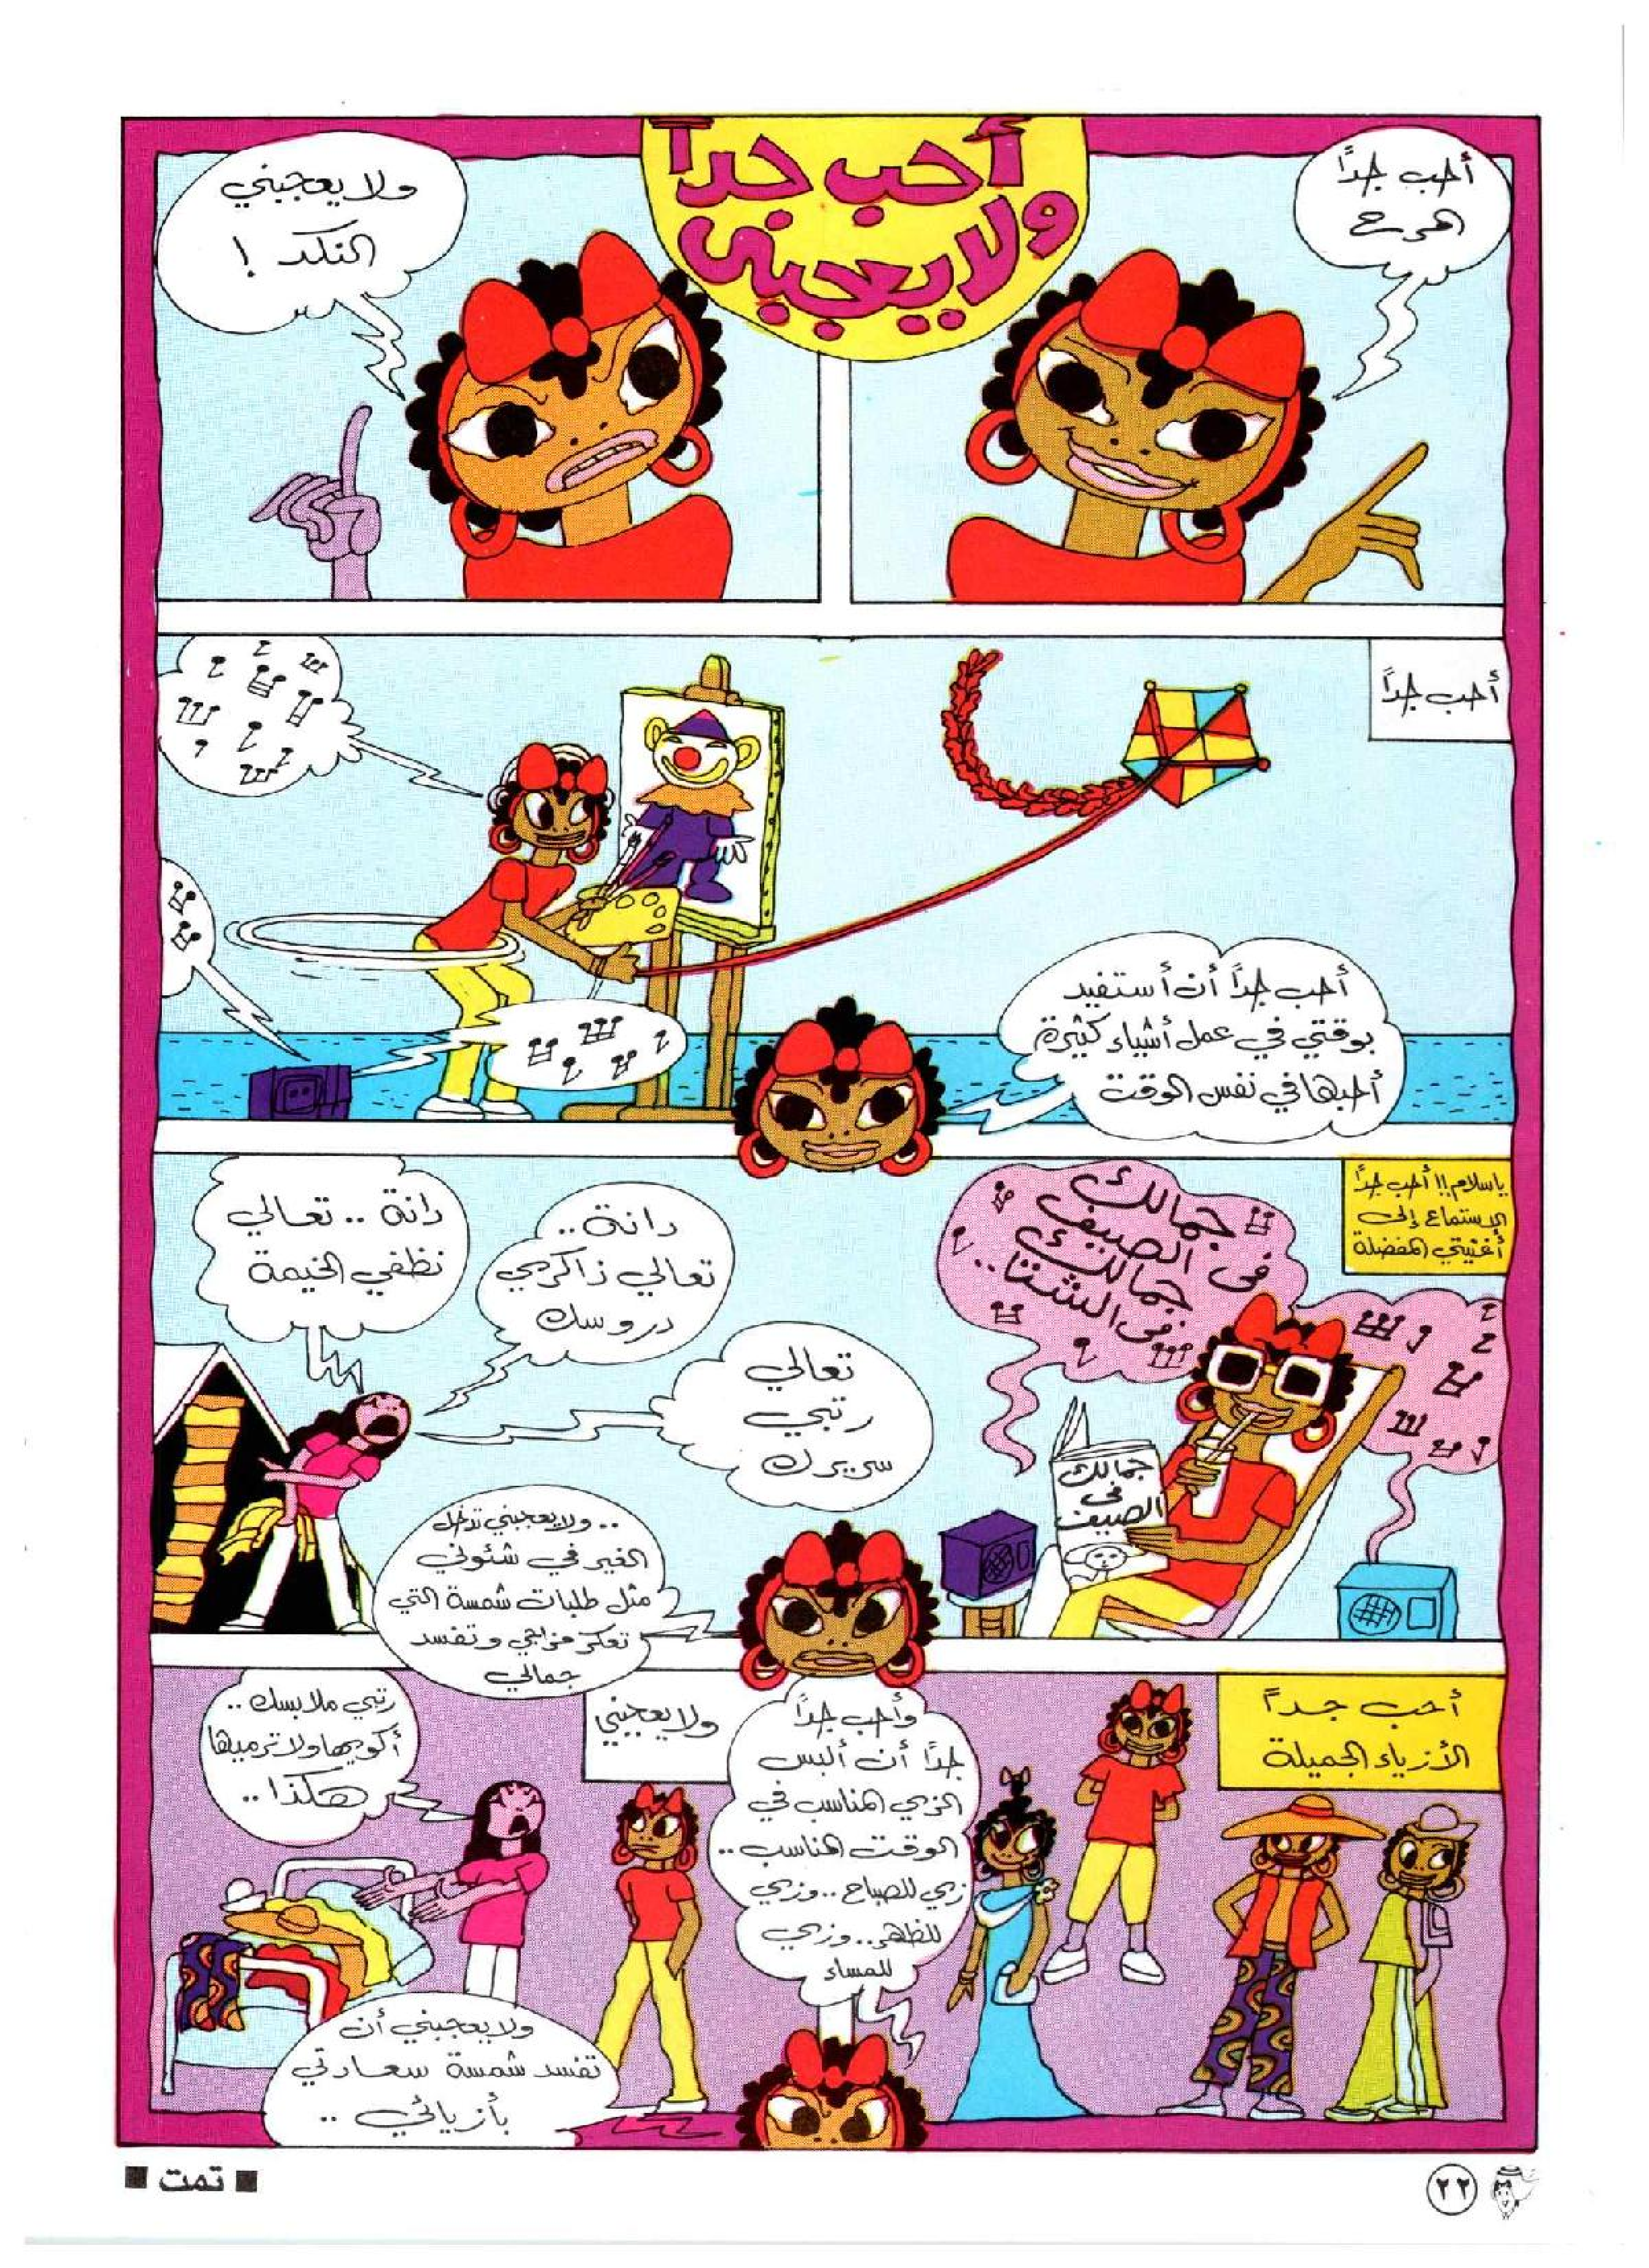 أحب جداً
ولا يعجبنى
أحب جداً
المرح
ولا يعجبني
النكد !
أحب جداً
أحب جداً أن أستفيد
بوقتي في عمل أشياء كثيرة
أحبها في نفس الوقت
ياسلام !! أحب جداً
الاستماع إلى
أغنيتي المفضلة
جمالك
فى الصيف
جمالك
فى الشتا..
جمالك
فى
الصيف
دانة ..
تعالي ذاكري
دروسك
دانة .. تعالي
نظفي الخيمة
تعالي
رتبي
سريرك
.. ولا يعجبني تدخل
الغير في شئوني
مثل طلبات شمسة التي
تعكر مزاجي وتفسد
جمالي
أحب جداً
الأزياء الجميلة
وأحب جداً
جداً أن ألبس
الزي المناسب في
الوقت المناسب ..
زي للصباح .. وزي
للظهر .. وزي
للمساء
ولا يعجبني
رتبي ملابسك ..
أكويها ولا ترميها
هكذا ..
ولا يعجبني أن
تفسد شمسة سعادتي
بأزيائي ..
٢٢
■ تمت ■